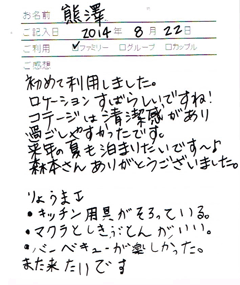 お名前 熊澤
ご記入日 2014年 8月 22日
ご利用 ☑ファミリー □グループ □カップル
ご感想
初めて利用しました。
ロケーションすばらしいですね!
コテージは清潔感があり
過ごしやすかったです。
来年の夏も泊まりたいです〜♪
森本さんありがとうございました。
りょうまェ
•キッチン用具がそろっている。
•マクラとしきぶとんがいい。
•バーベキューが楽しかった。
また来たいです